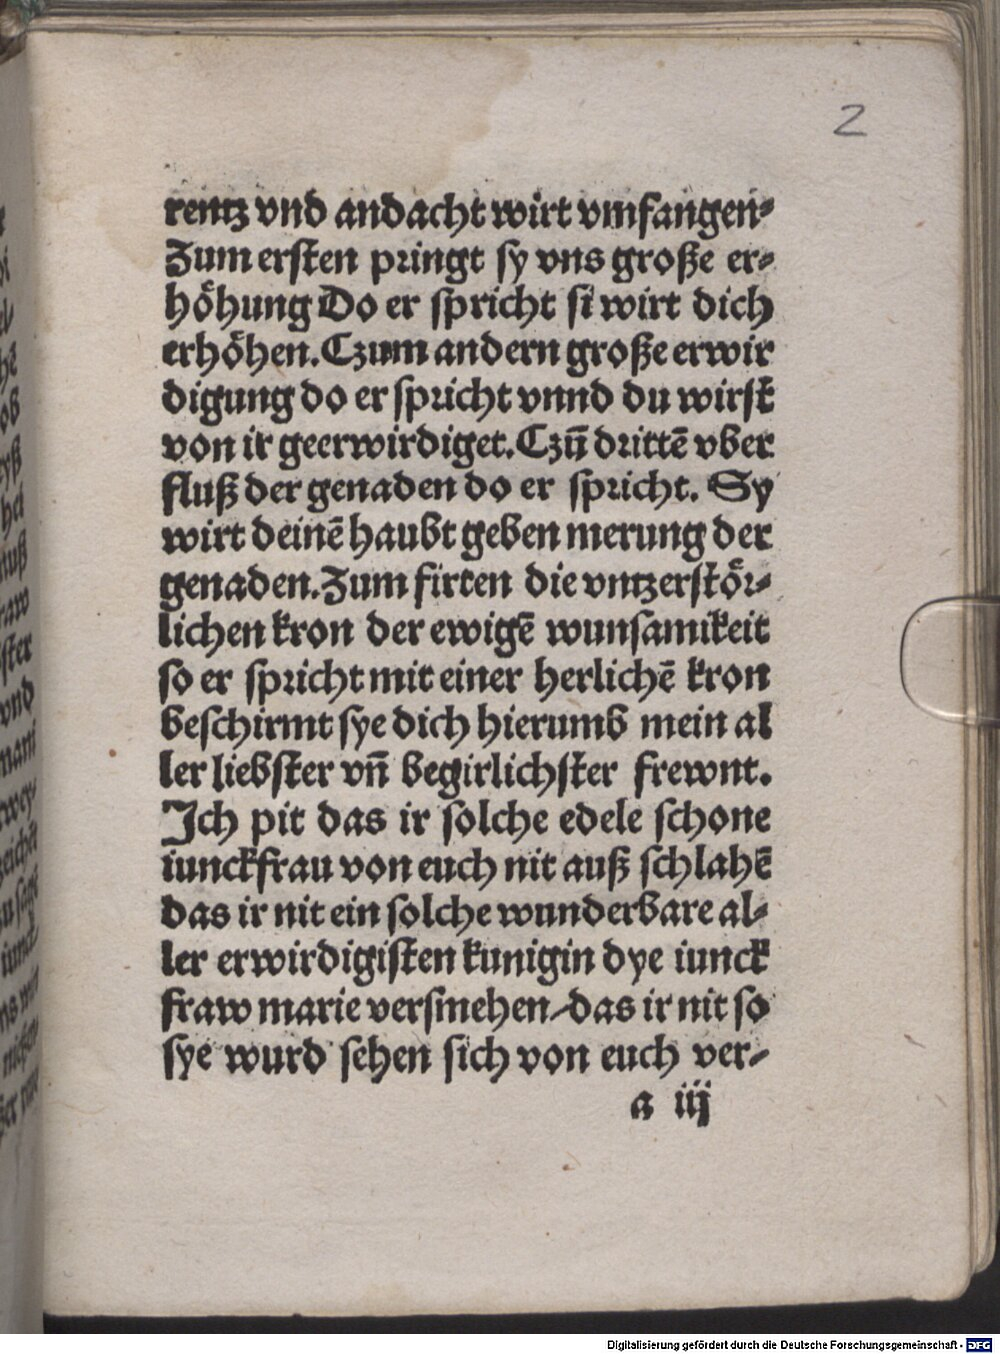 2
rentz vnd andacht wirt vmfangen⸗
Zum ersten pringt sy vns große er⸗
höhung Do er spricht si wirt dich
erhöhen. Czum andern große erwir
digung do er spricht vnnd du wirst
von ir geerwirdiget. Czū drittē vber
fluß der genaden do er spricht. Sy
wirt deinē haubt geben merung der
genaden. Zum firten die vntzerstör⸗
lichen kron der ewigē wunsamikeit
so er spricht mit einer herlichē kron
beschirmt sye dich hierumb mein al
ler liebster vn̄ begirlichster frewnt.
Ich pit das ir solche edele schone
iunckfrau von euch nit auß schlahē
das ir nit ein solche wunderbare al⸗
ler erwirdigisten kunigin dye iunck
fraw marie versmehen/das ir nit so
sye wurd sehen sich von euch ver⸗
a iij
Digitalisierung gefördert durch die Deutsche Forschungsgemeinschaft - DFG